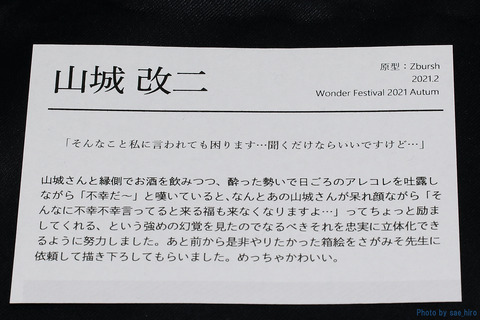 山城 改二
原型：Zbursh
2021.2
Wonder Festival 2021 Autum
「そんなこと私に言われても困ります…聞くだけならいいですけど…」
山城さんと縁側でお酒を飲みつつ、酔った勢いで日ごろのアレコレを吐露し
ながら「不幸だ～」と嘆いていると、なんとあの山城さんが呆れ顔ながら「そ
んなに不幸不幸言ってると来る福も来なくなりますよ…」ってちょっと励ま
してくれる、という強めの幻覚を見たのでなるべきそれを忠実に立体化でき
るように努力しました。あと前から是非やりたかった箱絵をさがみそ先生に
依頼して描き下ろしてもらいました。めっちゃかわいい。
Photo by sae_hiro